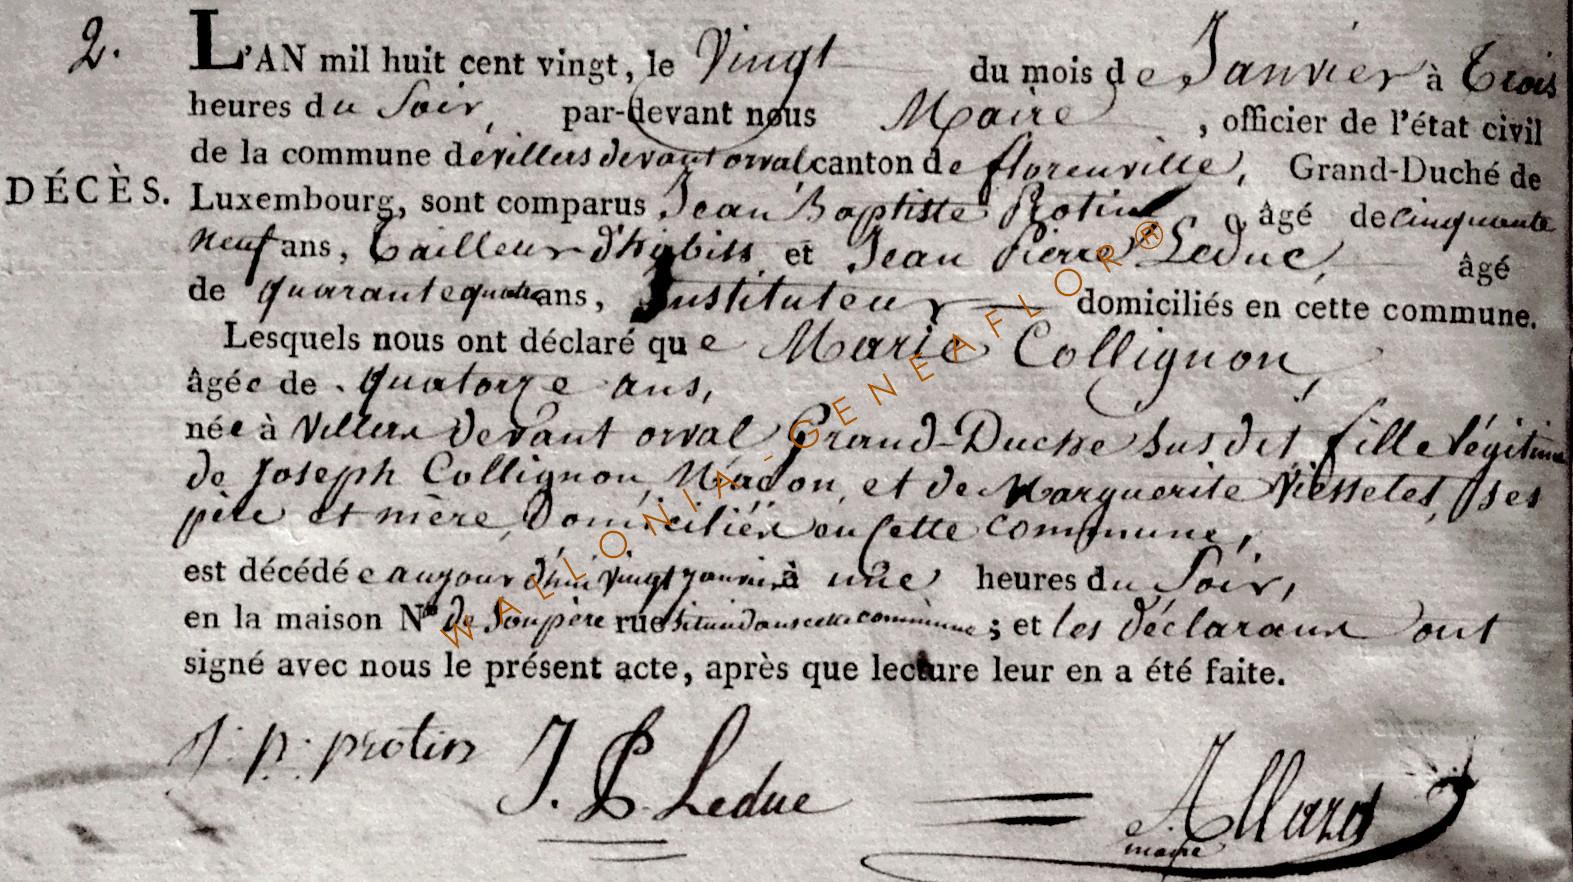 2. L'AN mil huit cent vingt, le Vingt du mois de Janvier à trois
heures du Soir, par-devant nous Maire, officier de l'état civil
de la commune de villers devant orval canton de florenville, Grand-Duché de
DÉCÈS. Luxembourg, sont comparus Jean Baptiste Protin, âgé de cinquante
neuf ans, tailleur d'habits et Jean Pierre Leduc, âgé
de quarante quatre ans, Instituteur domiciliés en cette commune.
Lesquels nous ont déclaré que Marie Collignon,
âgée de quatorze ans,
née à Villers devant orval Grand-Duche susdit fille légitime
de Joseph Collignon, Maçon, et de Marguerite, ses
père et mère, Domiciliés en cette commune,
est décédée aujourd'hui vingt janvier à une heures du Soir,
en la maison N° de Son père rue située dans cette commune; et les déclarans ont
signé avec nous le présent acte, après que lecture leur en a été faite.
J. P. Leduc
protin
Allard
maire
WALLONIA-GENEAFLOR®